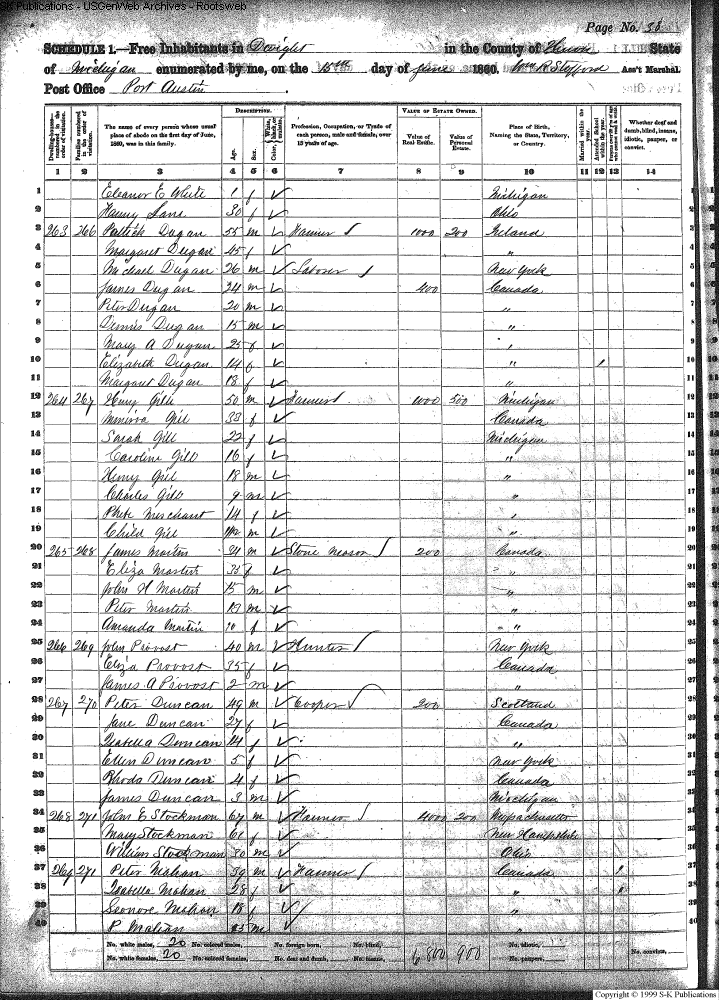 SK Publications - USGenWeb Archives - Rootsweb
Page No. 38
SCHEDULE 1.—Free Inhabitants in Dwight in the County of Huron State
of Michigan enumerated by me, on the 15th day of June 1860. Wm R Stafford Ass't Marshal.
Post Office Port Austin
Dwelling-houses—numbered in the order of visitation. Families numbered in the order of visitation. The name of every person whose usual place of abode on the first day of June, 1860, was in this family. DESCRIPTION. Age. Sex. Color, White, black, or mulatto. Profession, Occupation, or Trade of each person, male and female, over 15 years of age. VALUE OF ESTATE OWNED. Value of Real Estate. Value of Personal Estate. Place of Birth, Naming the State, Territory, or Country. Married within the year. Attended School within the year. Whether deaf and dumb, blind, insane, idiotic, pauper, or convict.
1 2 3 4 5 6 7 8 9 10 11 12 13 14
1 Eleanor E White 1 f ✓ Michigan 1
2 Lane 30 f ✓ Ohio 2
3 263 266 Patrick Dugan 55 m ✓ Farmer 1000 200 Ireland 3
4 Margaret Dugan 45 f ✓ " 4
5 Michael Dugan 26 m ✓ Laborer New York 5
6 James Dugan 24 m ✓ 400 Canada 6
7 Peter Dugan 20 m ✓ " 7
8 Dennis Dugan 15 m ✓ " 8
9 Mary A Dugan 25 f ✓ " 9
10 Elizabeth Dugan 14 f ✓ " 1 10
11 Margaret Dugan 18 f ✓ " 11
12 264 267 Henry Gill 50 m ✓ Farmer 1000 500 Michigan 12
13 Minirva Gill 33 f ✓ Canada 13
14 Sarah Gill 22 f ✓ Michigan 14
15 Caroline Gill 16 f ✓ " 15
16 Henry Gill 18 m ✓ " 16
17 Charles Gill 9 m ✓ " 17
18 Merchant 14 f ✓ " 18
19 Child Gill m ✓ " 19
20 265 268 James Martin m ✓ Stone Mason 200 Canada 20
21 Eliza Martin 35 f ✓ " 21
22 John H Martin 15 m ✓ " 22
23 Peter Martin 13 m ✓ " 23
24 Amanda Martin f ✓ " 24
25 266 269 John Provost 40 m ✓ Hunter New York 25
26 Eliza Provost 35 f ✓ Canada 26
27 James A Provost 2 m ✓ " 27
28 267 270 Peter Duncan 49 m ✓ Cooper 200 Scotland 28
29 Jane Duncan 27 f ✓ Canada 29
30 Isabella Duncan 14 f ✓ " 30
31 Ellen Duncan 5 f ✓ New York 31
32 Rhoda Duncan 4 f ✓ Canada 32
33 James Duncan 3 m ✓ Michigan 33
34 268 271 John E Stockman 67 m ✓ Farmer 4000 200 Massachusetts 34
35 Mary Stockman 61 f ✓ New Hampshire 35
36 William Stockman 30 m ✓ Ohio 36
37 269 271 Peter Mahan 39 m ✓ Farmer Canada 1 37
38 Isabella Mahan 28 f ✓ " 1 38
39 Leonora Mahan 18 f ✓ " 39
40 P Mahan m ✓ " 40
No. white males, 20 No. colored males, No. foreign born, No. blind, 6800 900 No. idiotic,
No. white females, 20 No. colored females, No. deaf and dumb, No. insane, No. paupers, No. convicts,
Copyright © 1999 S-K Publications